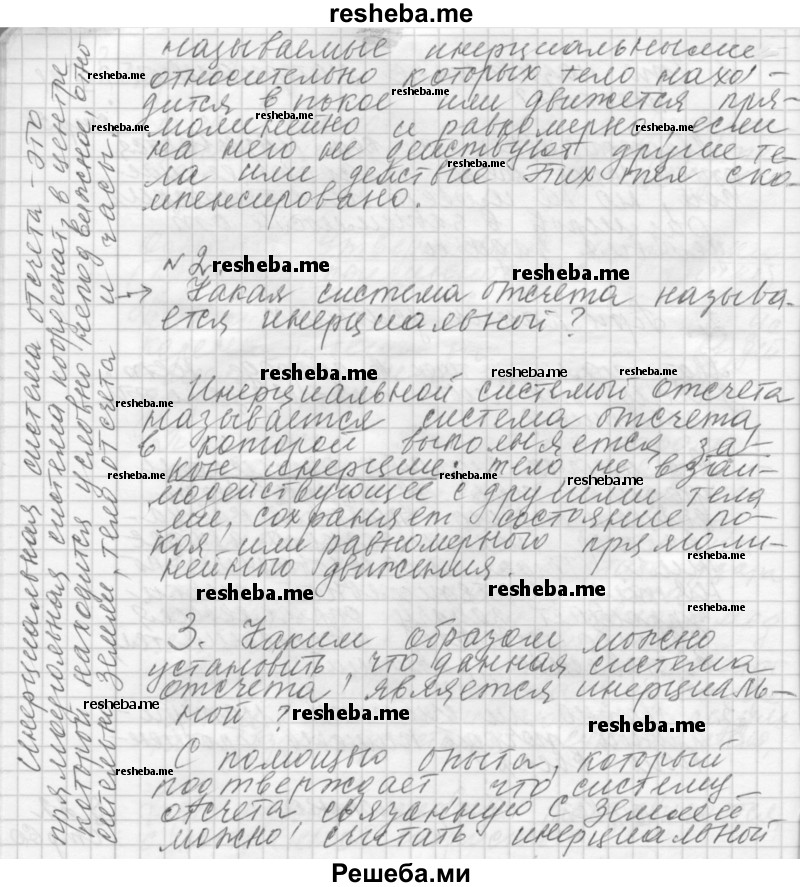 resheba.me
называемые инерциальными
относительно которых тело нахо-
дится в покое или движется пря-
молинейно и равномерно, если
на него не действуют другие те-
ла или действие этих тел ско-
мпенсировано.
№2
Какая система отсчета называ-
ется инерциальной?
Инерциальной системый отсчета
называется система отсчета,
в которой выполняется за-
коне инерции: тело не взаи-
модействующее с другими тела
ми, сохраняет состояние по-
коя или равномерного прямоли-
нейного движения.
3. Каким образом можно
установить, что данная система
отсчета, является инерциаль-
ной?
С помощью опыта, который
подтверждает что систему
отсчета связанную с Землей
можно считать инерциальной
Инерциальная система отсчета - это
прямоугольная система координат в центре
которой находится условно неподвижна, отно
сительно Земли, тело отсчета и часы.
resheba.me
resheba.me
resheba.me
resheba.me
resheba.me
resheba.me
resheba.me
resheba.me
resheba.me
resheba.me
resheba.me
resheba.me
resheba.me
resheba.me
resheba.me
resheba.me
resheba.me
resheba.me
resheba.me
resheba.me
resheba.me
resheba.me
Решеба.ми